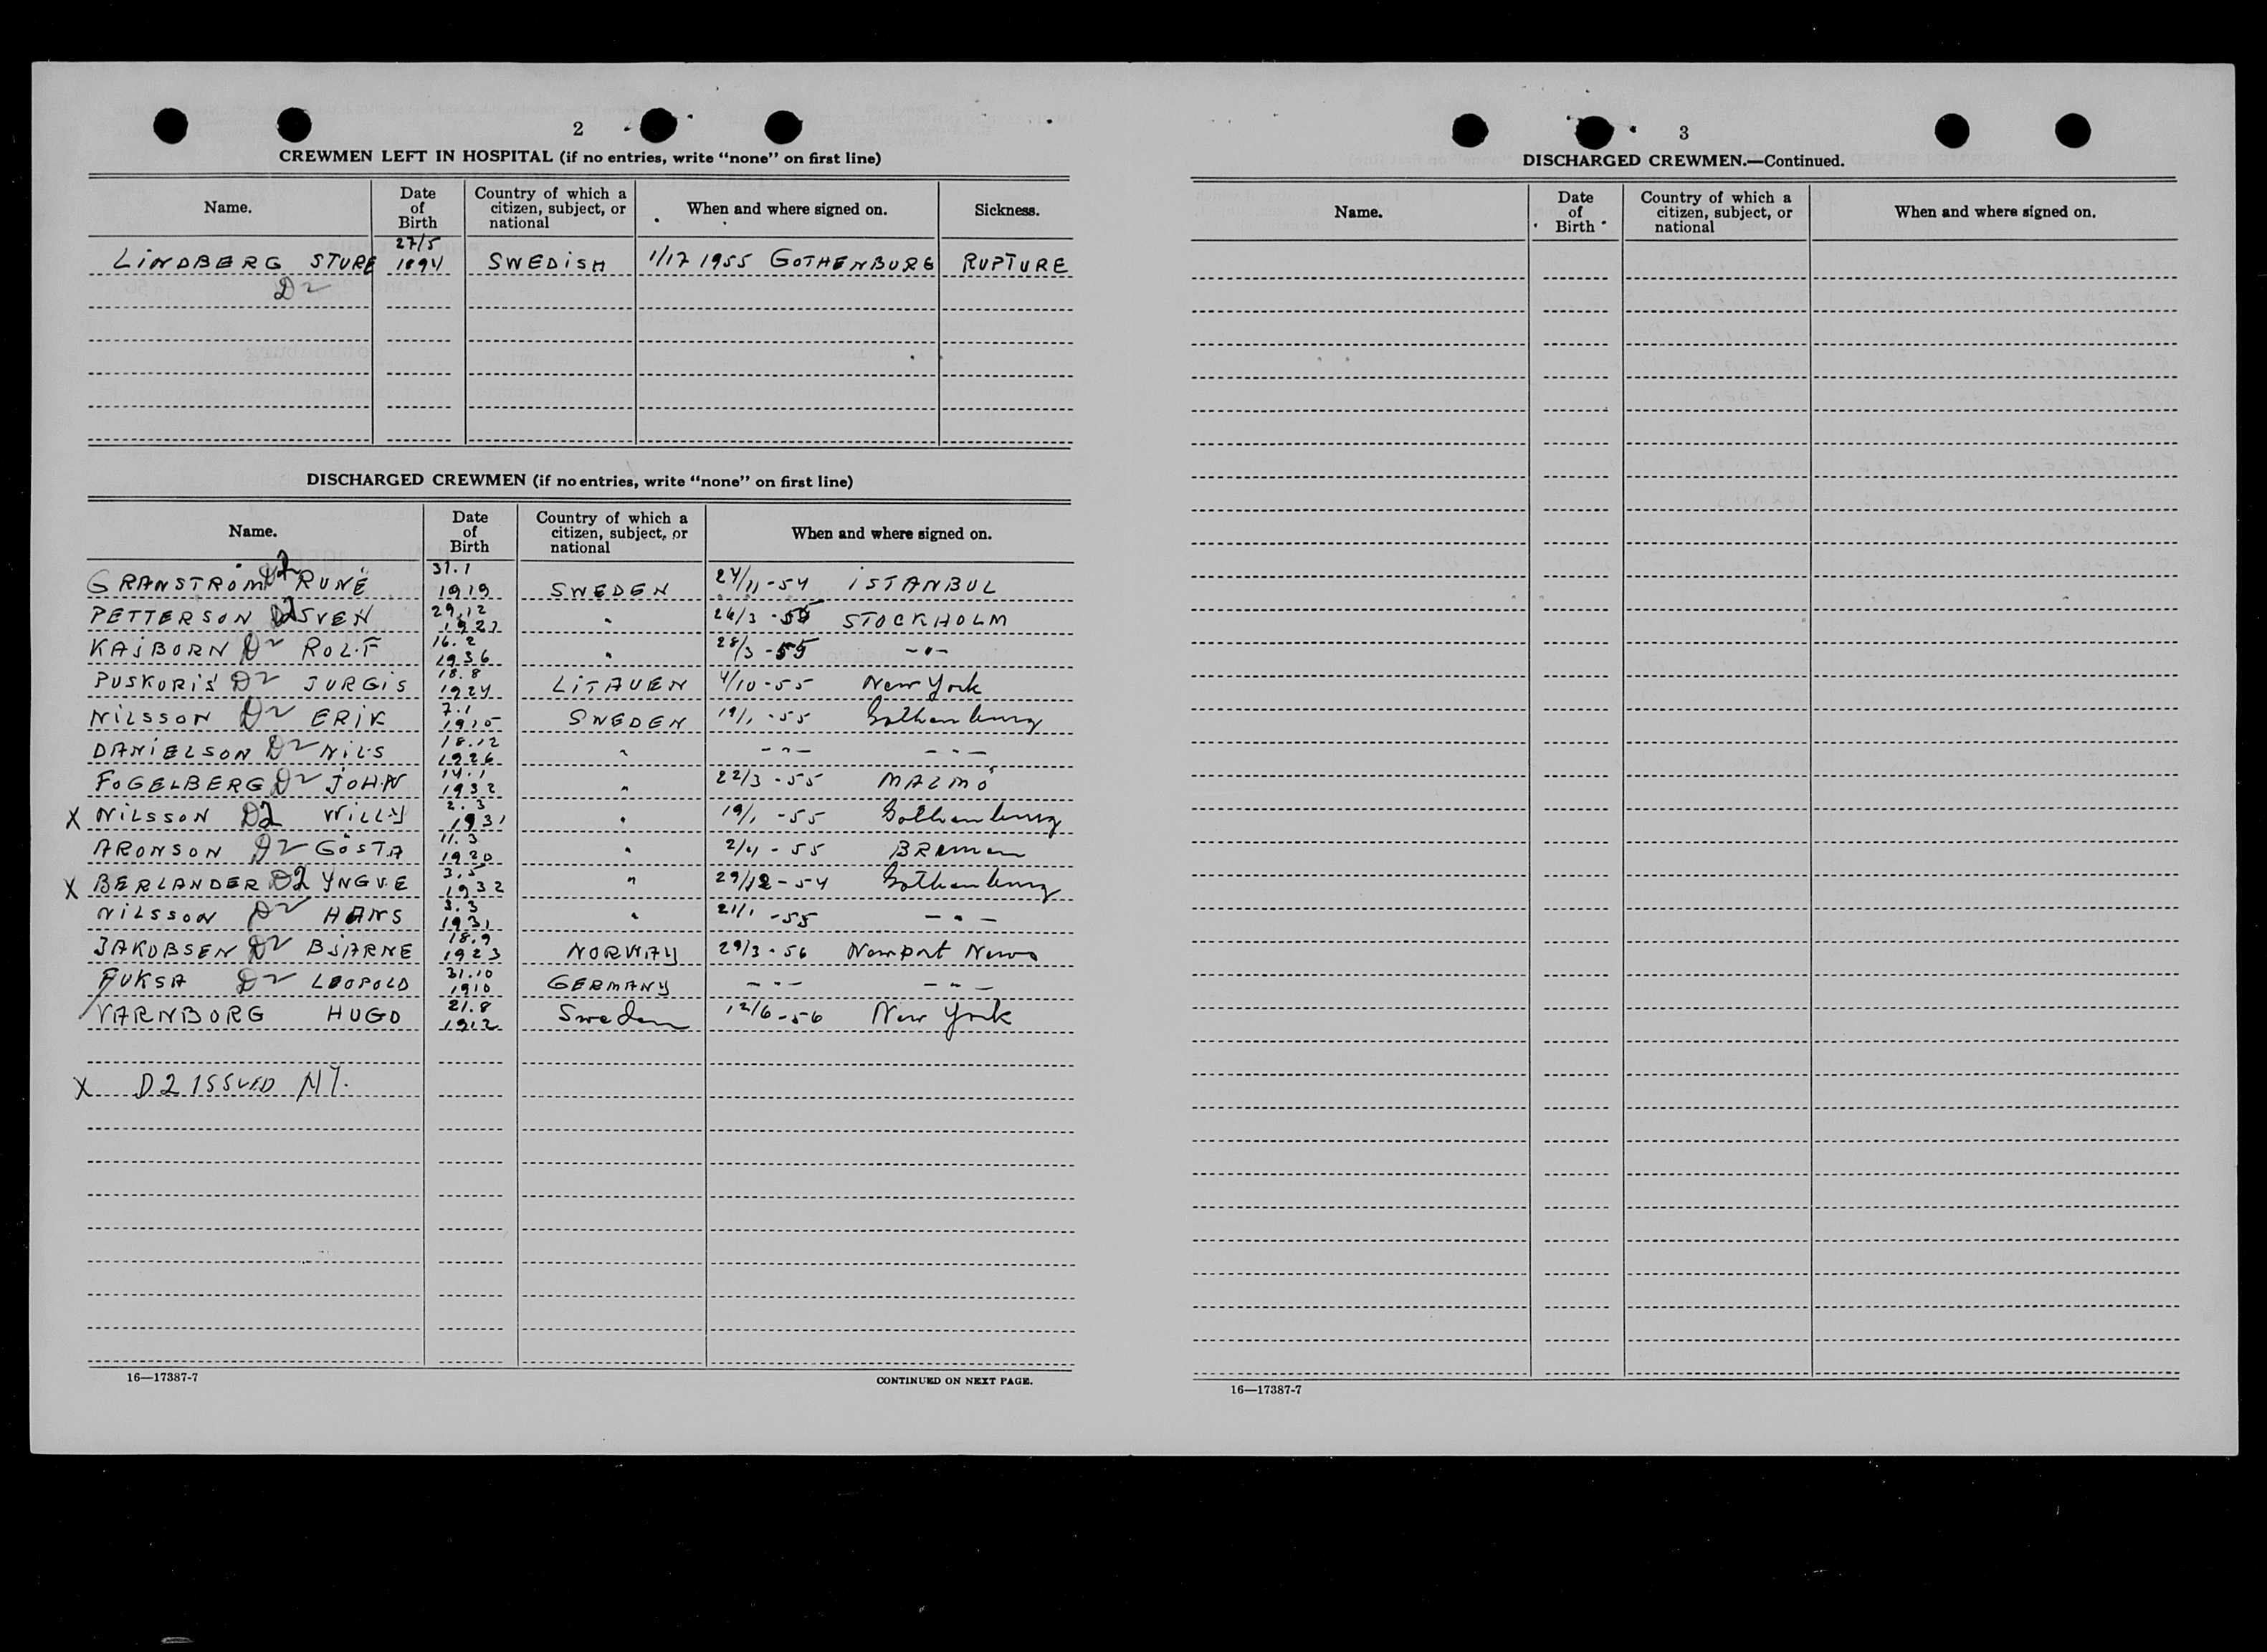 2
CREWMEN LEFT IN HOSPITAL (if no entries, write “none” on first line)
Name. Date of Birth Country of which a citizen, subject, or national When and where signed on. Sickness.
LINDBERG STURE 27/5 1894 SWEDISH 1/12 1955 GOTHENBURG RUPTURE
D2
DISCHARGED CREWMEN (if no entries, write “none” on first line)
Name. Date of Birth Country of which a citizen, subject, or national When and where signed on.
GRANSTRÖM D2 RUNE 31.1 1919 SWEDEN 24/11-54 ISTANBUL
PETTERSON D2 SVEN 29.12 1927 " 26/3-55 STOCKHOLM
KAJBORN D2 ROLF 16.2 1936 " 28/3-55 -"-
PUSKORIS D2 JURGIS 18.8 1924 LITAUEN 4/10-55 New York
NILSSON D2 ERIK 7.1 1915 SWEDEN 19/1-55 Gothenburg
DANIELSON D2 NILS 18.12 1926 " -"- -"-
FOGELBERG D2 JOHN 14.1 1932 " 22/3-55 MALMÖ
X NILSSON D2 WILLY 2.3 1931 " 19/1-55 Gothenburg
ARONSON D2 GÖSTA 11.3 1920 " 2/4-55 BREMEN
X BERLANDER D2 YNGVE 3.5 1932 " 29/12-54 Gothenburg
NILSSON D2 HANS 3.3 1931 " 21/1-55 -"-
JAKOBSEN D2 BJARNE 18.9 1923 NORWAY 29/3-56 Newport News
FUKSA D2 LEOPOLD 31.10 1910 GERMANY -"- -"-
VARNBORG HUGO 21.8 1912 Sweden 12/6-56 New York
X D2 ISSUED NY.
16—17387-7 CONTINUED ON NEXT PAGE.
3
DISCHARGED CREWMEN.—Continued.
Name. Date of Birth Country of which a citizen, subject, or national When and where signed on.
16—17387-7